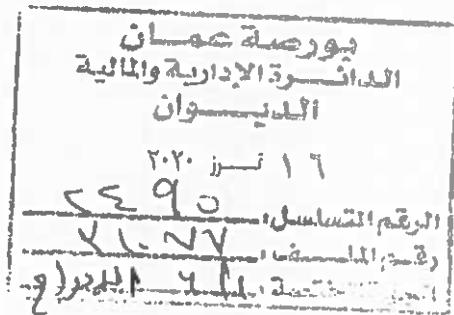 بورصة عمان
الدائرة الإدارية والمالية
الديوان
١٦ تموز ٢٠٢٠
الرقم المتسلسل: ٢٤٩٥
رقم الملف:
الجهة المختصة: